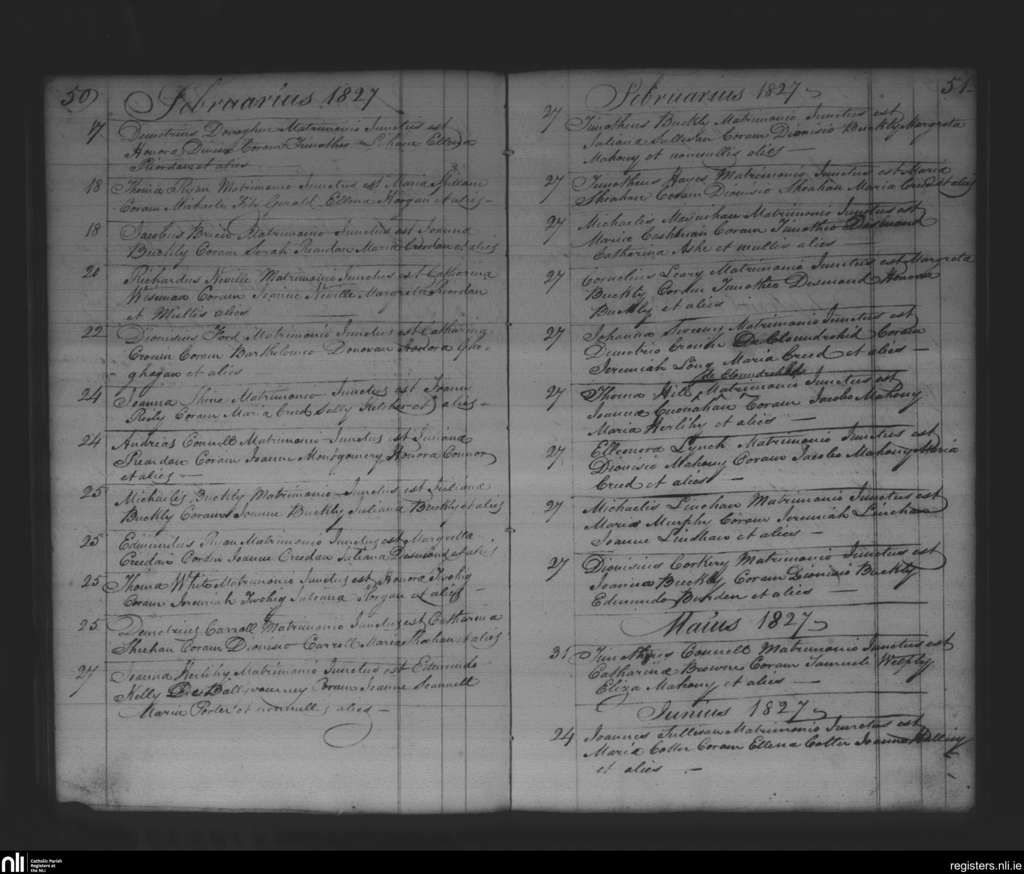 50
Februarius 1827
17 Demetrius Donoghue Matrimonio Junctus est
Honora Coram Timotheo Ellena
Riordan et aliis
18 Thoma Matrimonio Junctus est Maria
Coram Michaele Fitz Gerald Ellena Horgan et aliis
18 Jacobus Matrimonio Junctus est Joanna
Buckly Coram Sarah Reardan Maria et aliis
20 Richardus Neville Matrimonio Junctus est Catharina
Wiseman Coram Joanne Neville Margarita Riordan
et Multis aliis
22 Dionisius Ford Matrimonio Junctus est Catharina
Cronin Coram Bartholomeo Donovan Honora Gho-
ghegan et aliis
24 Joanna Shine Matrimonio Junctus est Joann
Coram Maria Creed et aliis
24 Andreas Connell Matrimonio Junctus est Juliana
Reardan Coram Joanne Montgomery Honora Connor
et aliis
25 Michaelis Buckly Matrimonio Junctus est Juliana
Buckly Coram Joanne Buckly Juliana Buckly et aliis
25 Edmundus Matrimonio Junctus est Margarita
Creedan Coram Joanne Creedan Juliana Desmond et aliis
25 Thoma White Matrimonio Junctus est Honora Twohig
Coram Jeremiah Twohig Juliana Horgan et aliis
25 Demetrius Carroll Matrimonio Junctus est Catharina
Sheehan Coram Dionisio Carroll Maria et aliis
27 Joanna Herlihy Matrimonio Junctus est Edmundo
Kelly De Coram Joanne Scannell
Maria et nonnullis aliis
51
Februarius 1827
27 Timotheus Buckly Matrimonio Junctus est
Juliana Sullivan Coram Dionisio Buckly Margreta
Mahony et nonnullis aliis
27 Timotheus Hayes Matrimonio Junctus est Maria
Sheadan Coram Dionisio Sheahan Maria Creed et aliis
27 Michaelis Matrimonio Junctus est
Coram Timothio Desmond
Catherina Ashe et multis aliis
27 Cornelius Leary Matrimonio Junctus est Margreta
Buckly Coram Timotheo Desmond Honora
Buckly et aliis
27 Johanna Matrimonio Junctus est
Demetrio Cronin De Cloundrohid Coram
Jeremiah Long Maria Creed et aliis
de Cloundrohid
27 Thoma Hill Matrimonio Junctus est
Joanna Coram Jacobo Mahony
Maria Herlihy et aliis
27 Elleonora Lynch Matrimonio Junctus est
Dionisio Mahony Coram Jacobo Mahony Maria
Creed et aliis
27 Michaelis Linehan Matrimonio Junctus est
Maria Murphy Coram Jeremiah Linehan
Joanne Linehan et aliis
27 Dionisius Corkery Matrimonio Junctus est
Joanna Buckly Coram Dionisio Buckly
Edmundo et aliis
Maius 1827
31 Timotheus Connell Matrimonio Junctus est
Catharina Browne Coram Samuele Wellply
Eliza Mahony et aliis
Junius 1827
24 Joannes Sullivan Matrimonio Junctus est
Maria Cotter Coram Ellena Cotter Joanna
et aliis
nli
Catholic Parish
Registers at
the NLI
registers.nli.ie